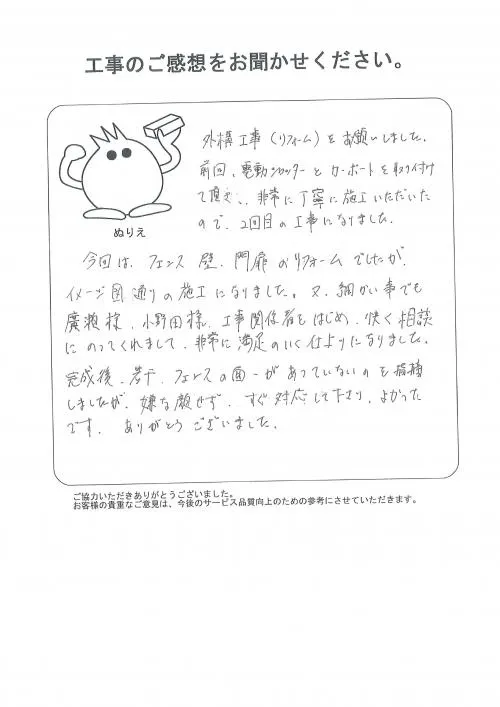 工事のご感想をお聞かせください。
外構工事(リフォーム)をお願いしました。
前回、電動シャッターとカーポートを取り付け
て頂き、非常に丁寧に施工いただいた
ので、2回目の工事になりました。
ぬりえ
今回は、フェンス 壁、門扉のリフォームでしたが、
イメージ図通りの施工になりました。又、細かい事でも
廣瀬様、小野田様、工事関係者をはじめ、快く相談
にのってくれまして、非常に満足のいく仕上りになりました。
完成後、若干、フェンスの面一があっていないのを指摘
しましたが、嫌な顔せず、すぐ対応して下さり、よかった
です。ありがとうございました。
ご協力いただきありがとうございました。
お客様の貴重なご意見は、今後のサービス品質向上のための参考にさせていただきます。